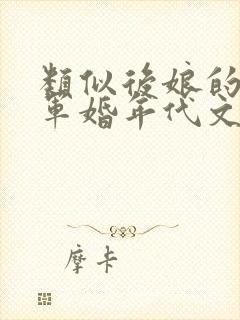 類似後娘的
軍婚年代文
摩卡